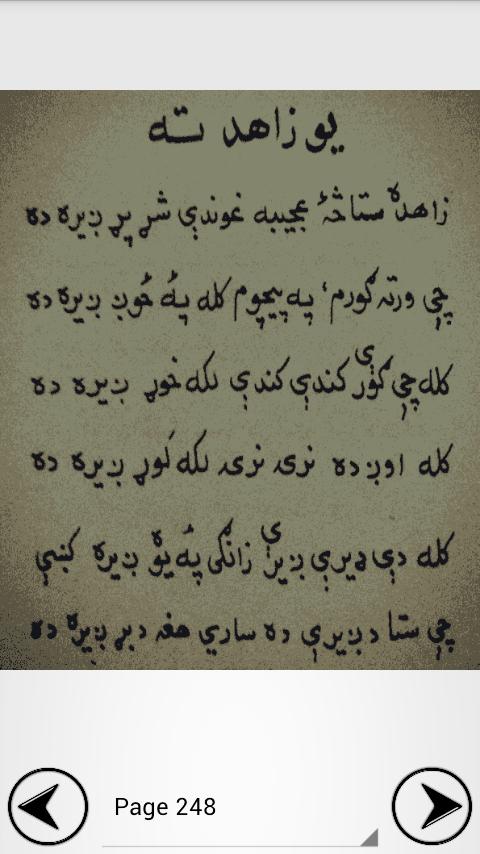 يو زاهد ته
زاهده ستا څۀ عجيبه غوندې شړ پړ ږيره ده
چې ورته ګورم، په پيچوم کله پۀ ځوړ ږيره ده
کله چې ګورې کندې کندې لکه خوړ ږيره ده
کله اوږده نرۍ نرۍ لکه لوړ ږيره ده
کله دې ډيرې ږيرې زانګي پۀ يوۀ ږيره کښې
چې ستا د ږيرې ده سارې هغه دبر ږيره ده
Page 248